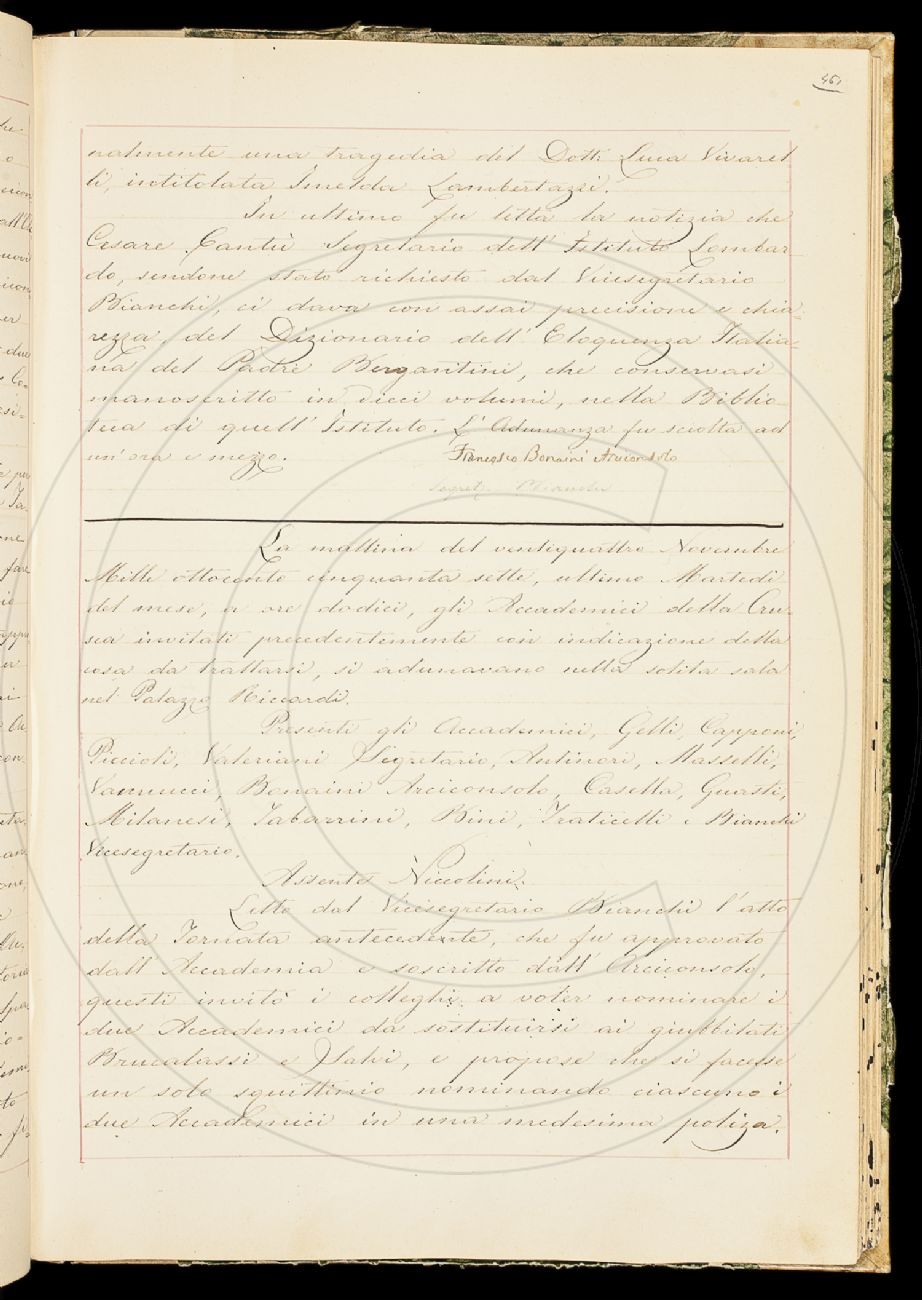 461
nalmente una tragedia del Dott. Luca Vivarel
li, intitolata Imelda Lambertazzi.
In ultimo fu letta la notizia che
Cesare Cantù Segretario dell' Istituto Lombar
do, sendone stato richiesto dal Vicesegretario
Bianchi, ci dava con assai precisione e chia
rezza, del Dizionario dell' Eloquenza Italia=
na del Padre Bergantini, che conservasi
manoscritto in dieci volumi, nella Biblio
teca di quell' Istituto. L' Adunanza fu sciolta ad
un' ora e mezzo. Francesco Bonaini Arciconsolo
La mattina del ventiquattro Novembre
Mille ottocento cinquanta sette, ultimo Martedì
del mese, a ore dodici, gli Accademici della Cru=
sca invitati precedentemente con indicazione della
cosa da trattarsi, si adunavano nella solita sala
nel Palazzo Riccardi.
Presenti gli Accademici, Gelli, Capponi,
Piccioli, Valeriani Segretario, Antinori, Masselli,
Vannucci, Bonaini Arciconsolo, Casella, Guasti,
Milanesi, Tabarrini, Bini, Fraticelli e Bianchi
Vicesegretario.
Assente Niccolini.
Letto dal Vicesegretario Bianchi l' atto
della Tornata antecedente, che fu approvato
dall' Accademia e soscritto dall' Arciconsolo,
questi invitò i colleghi a voler nominare i
due Accademici da sostituirsi ai giubbilati
Brucalassi e Salvi, e propose che si facesse
un solo squittinio nominando ciascuno i
due Accademici in una medesima poliza.